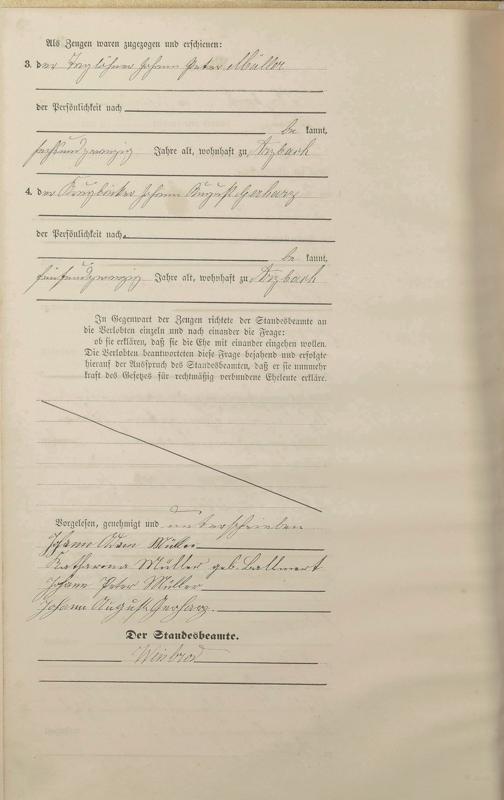 Als Zeugen waren zugezogen und erschienen:
3. der Tagelöhner Johann Peter Müller
der Persönlichkeit nach
be kannt,
sechsundzwanzig Jahre alt, wohnhaft zu Arzbach
4. der Johann August Gerharz
der Persönlichkeit nach
be kannt,
fünfundzwanzig Jahre alt, wohnhaft zu Arzbach
In Gegenwart der Zeugen richtete der Standesbeamte an
die Verlobten einzeln und nach einander die Frage:
ob sie erklären, daß sie die Ehe mit einander eingehen wollen.
Die Verlobten beantworteten diese Frage bejahend und erfolgte
hierauf der Ausspruch des Standesbeamten, daß er sie nunmehr
kraft des Gesetzes für rechtmäßig verbundene Eheleute erkläre.
Vorgelesen, genehmigt und unterschrieben
Johann Adam Müller
Katharina Müller geb. Ballmert
Johann Peter Müller
Johann August Gerharz.
Der Standesbeamte.